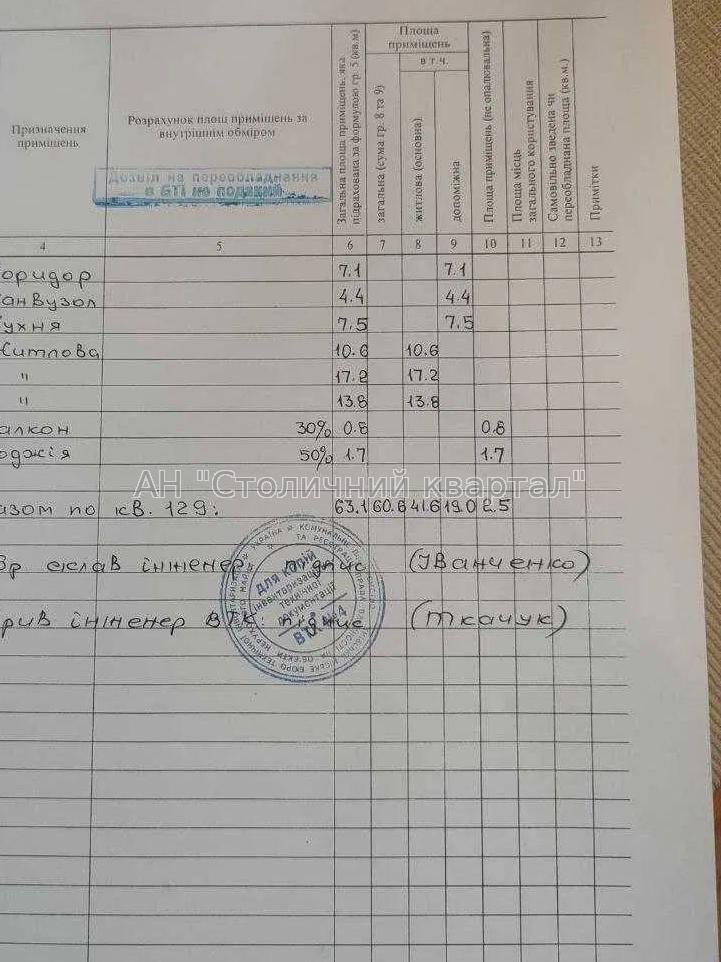 Призначення приміщень
Розрахунок площ приміщень за внутрішнім обміром
Загальна площа приміщень, яка підрахована за формулою гр. 5 (кв.м)
Площа приміщень
в т.ч.
загальна (сума гр. 8 та 9)
житлова (основна)
допоміжна
Площа приміщень (не опалювальна)
Площа місць загального користування
Самовільно зведена чи переобладнана площа (кв.м.)
Примітки
Дозвіл на переобладнання
в БТІ не поданий
4 5 6 7 8 9 10 11 12 13
оридор 7.1 7.1
анвузол 4.4 4.4
ухня 7.5 7.5
Житлова 10.6 10.6
" 17.2 17.2
" 13.8 13.8
алкон 30% 0.8 0.8
оджія 50% 1.7 1.7
АН "Столичний квартал"
азом по кв. 129: 63.1 60.6 41.6 19.0 2.5
склав інженер: підпис (Іванченко)
рив інженер ВТК: підпис (Ткачук)
для копій
інвентаризаційної
технічної
документації